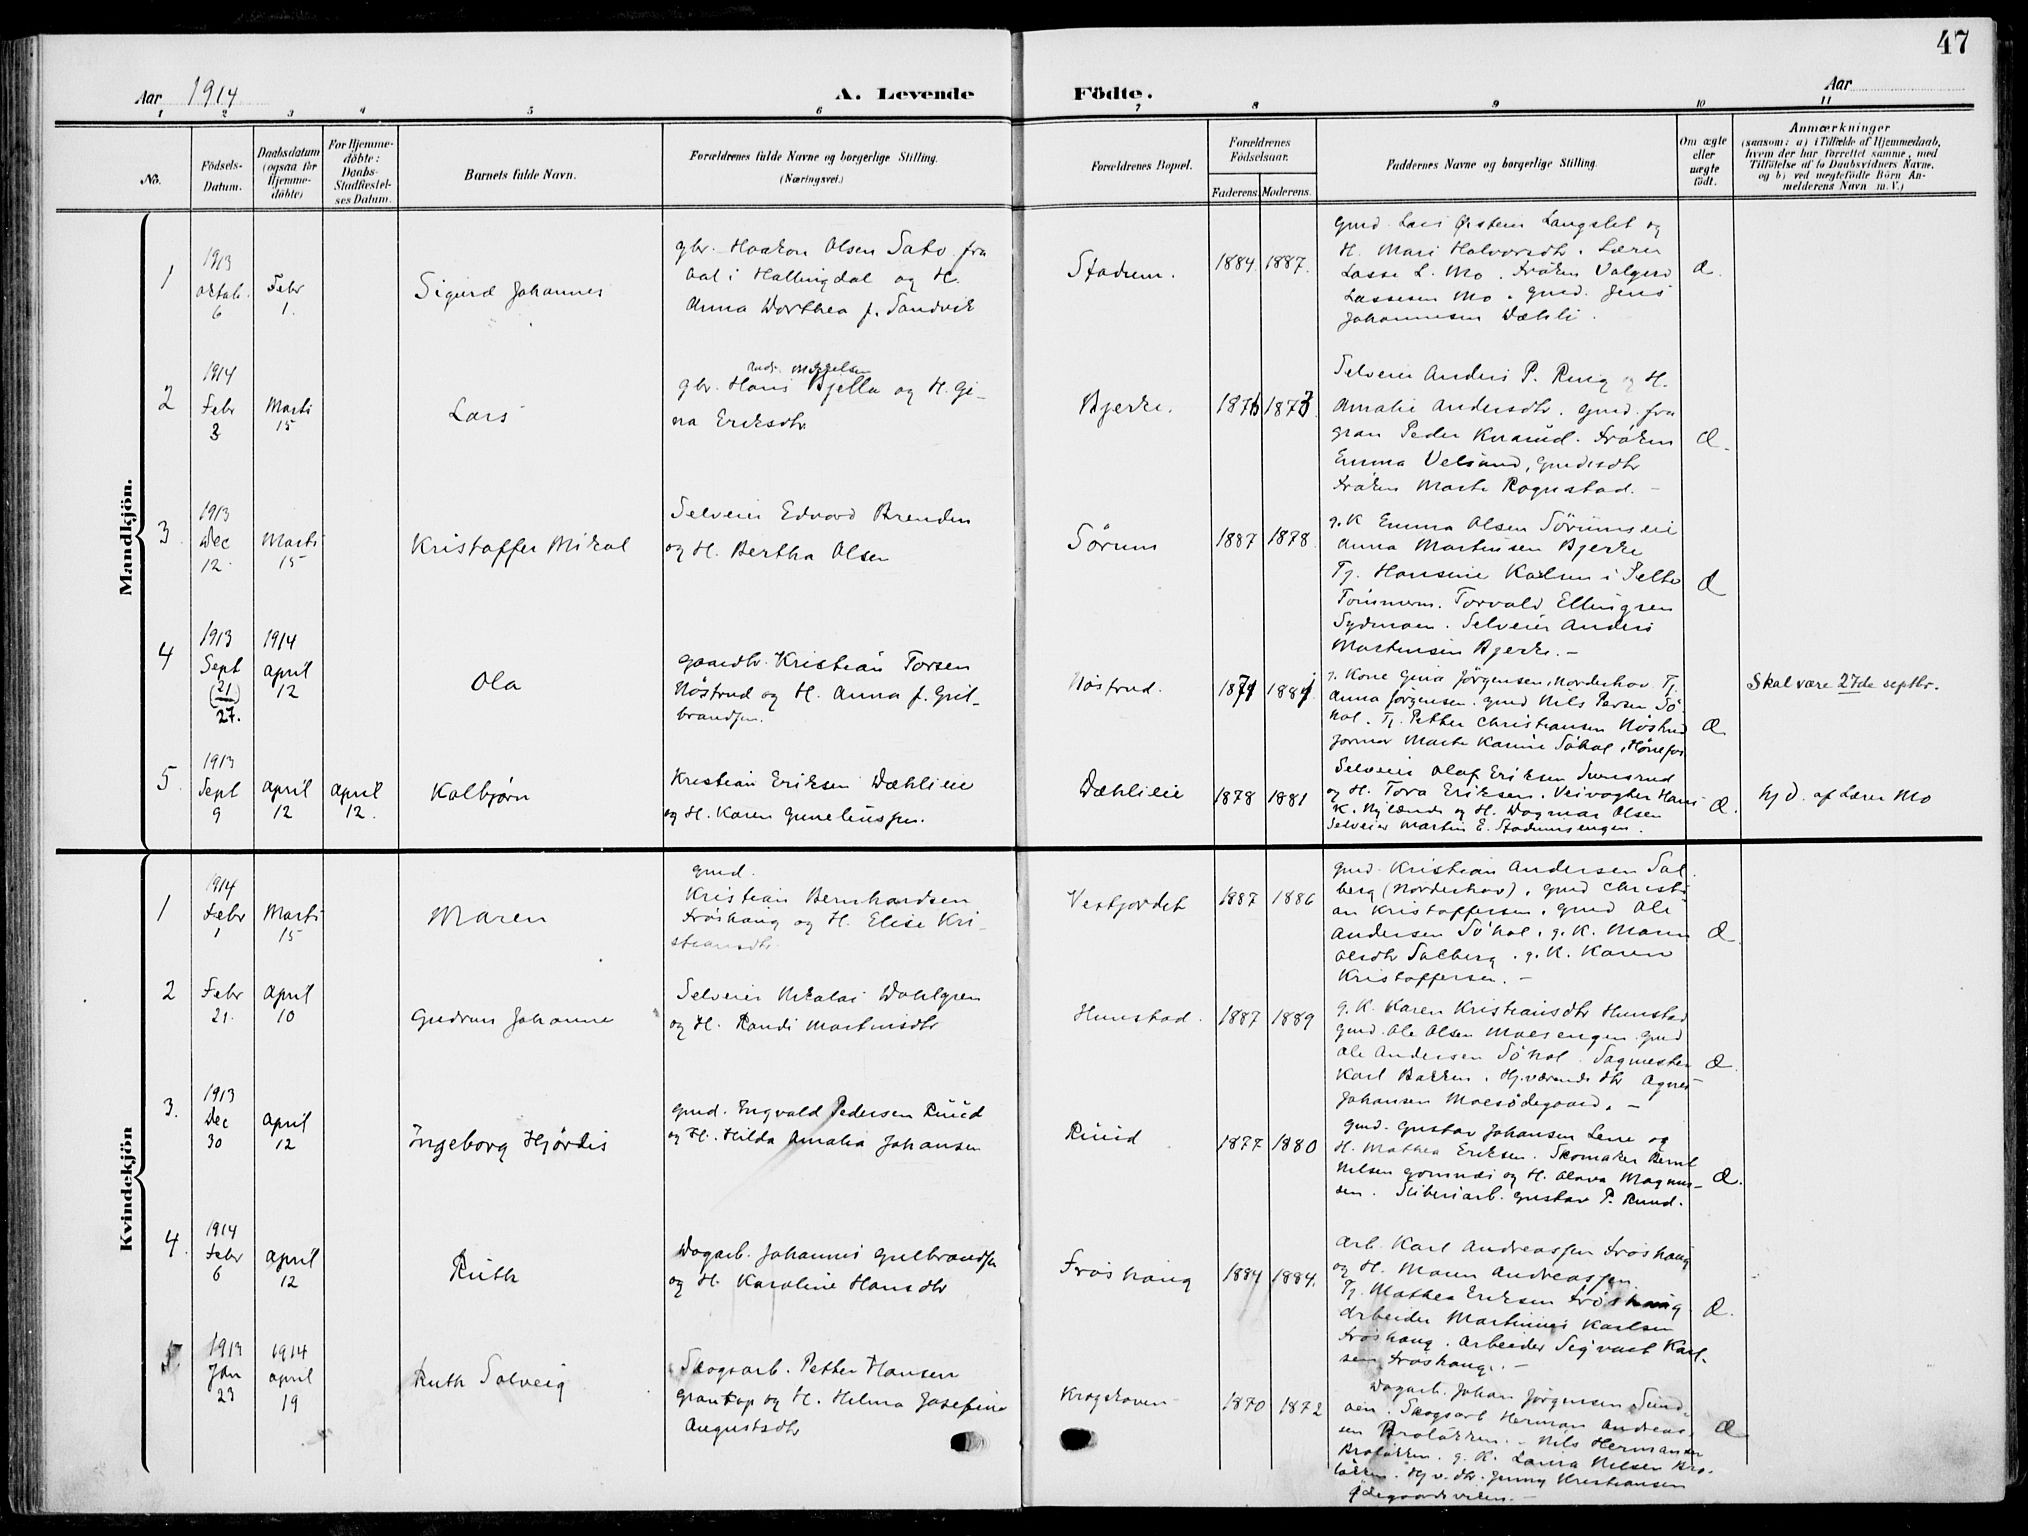 47
Aar 1914
A. Levende Födte.
Aar
1 2 3 4 5 6 7 8 9 10 11
No.
Födsels-Datum.
Daabsdatum (ogsaa for Hjemme-döbte)
For Hjemme-döbte: Daabs-Stadfæstel-ses Datum.
Barnets fulde Navn.
Forældrenes fulde Navne og borgerlige Stilling.
(Næringsvei.)
Forældrenes Bopæl.
Forældrenes Födselsaar.
Faderens. Moderens.
Faddernes Navne og borgerlige Stilling.
Om ægte eller uægte födt.
Anmærkninger
(saasom: a) i Tilfælde af Hjemmedaab, hvem der har forrettet samme, med Tilföielse af to Daabsvidners Navne, og b) ved uægtefödte Börn An-melderens Navn m. V.)
Mandkjön.
1
1913
oktob.
6
Febr
1.
Sigurd Johannes
gbr. Haakon Olsen Sato fra
Aal i Hallingdal og H.
Anna Dorthea f. Sandvik
Stadum.
1884 1887.
gmd. Lars Østen Langslet og
H. Mari Halvorsdtr. Lærer
Lasse L. Mo. Frøken Valgerd
Lassesen Mo. gmd. Jens
Johannesen Dæhli.
Æ.
2
1914
Febr
3
Marts
15
Lars
gbr. Hans Bjella og H. Gi-
na Eriksdtr.
Bjerke.
1876 1873.
Selveier Anders P. Ruig og H.
Amalie Andersdtr. gmd. fra
Gran Peder Knarud. Frøken
Emma Velsand, gmdsdtr
Frøken Marte Rognstad. -
Æ.
3
1913
Dec
12.
Marts
15
Kristoffer Mikal
Selveier Edvard Brenden
og H. Bertha Olsen
Sørum
1887 1878.
g. K Emma Olsen Sørumseie
Anna Martinsen Bjerke
Tj. Hansine Karlsen i Selte
Tømmerm. Torvald Ellingsen
Sydmoen. Selveier Anders
Martinsen Bjerke. -
Æ
4
1913
Sept
(21)
27.
1914
april
12
Ola
gaardbr. Kristian Torsen
Nöstrud og H. Anna f. Gul-
brandsen.
Nöstrud.
1871 1881
g. Kone Gina Jørgensen, Norderhov. Tj.
Anna Jørgensen. gmd Nils Persen Sö-
hol. Tj. Petter Christiansen Nöstrud
Jormor Marte Karine Söhol, Hönefos
Æ
Skal være 27de septbr.
5
1913
Sept
9
april
12
april
12.
Kolbjørn
Kristian Eriksen Dæhlieie
og H. Karen Gunelinssen.
Dæhlieie
1878 1881
Selveier Olaf Eriksen Svensrud
og H. Tora Eriksen. Veivogter Hans
K. Nylænde og H. Dagmar Olsen
Selveier Martin E. Stadumsengen.
Æ.
hj D. af Lærer Mo
Kvindekjön
1
1914
Febr
1
Marts
15
Maren
gmd.
Kristian Bernhardsen
Fröshaug og H. Elise Kri-
stiansdtr.
Vestjordet
1887 1886
gmd. Kristian Andersen Sol-
berg (Norderhov). gmd Christi-
an Kristoffersen. gmd Ole
Andersen Söhol. g. K. Maren
Olsdtr Solberg. g. K. Karen
Kristoffersen. -
Æ.
2
Febr
21.
april
10
Gudrun Johanne
Selveier Nikolai Dahlgren
og H. Randi Martinsdtr
Hunstad.
1887 1889
g. K. Karen Kristiansdtr Hunstad
gmd. Ole Olsen Moesengen. gmd
Ole Andersen Söhol. Sagmester
Karl Bakken. Hj.værende dtr Agnes
Johansen Moesödegaard. -
Æ.
3.
1913
Dec
30
april
12
Ingeborg Hjördis
gmd. Engvald Pedersen Ruud
og H. Hilda Amalia Johansen
Ruud
1877 1880
gmd. Gustav Johansen Lene og
H. Mathea Eriksen. Skomaker Bernt
Nilsen og H. Olava Magnus-
sen. Sliberiarb. Gustav P. Ruud.
Æ.
4.
1914
Febr
6
april
12
Ruth
Dagarb. Johannes Gulbrandsen
og H. Karoline Hansdtr
Fröshaug
1884 1884.
Arb. Karl Andreassen Fröshaug
og H. Maren Andreassen.
Tj. Mathea Eriksen Fröshaug
Arbeider Martinius Karlsen
Fröshaug. Arbeider Sigvart Karl-
sen Fröshaug. -
Æ.
5.
1913
Jan
23
1914
april
19
Ruth Solveig
Skogsarb. Petter Hansen
Grantop og H. Helma Josefine
Augustsdtr
Krogskoven
1870 1872
Dagarb. Johan Jørgensen Sund-
øen. Skogsarb Herman Andreas-
sen Braløkken. - Nils Hermansen
Braløkken. g. K. Laura Nilsen Bra-
løkken. Hj. v. dtr. Jenny Kristiansen
Ødegaardsveien. -
Æ